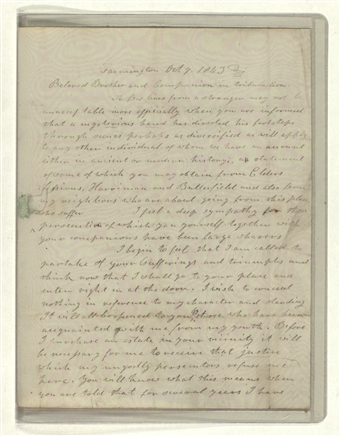 Farmington Oct 7, 1843
Beloved Brother and Companion in tribulation
To see lines from a stranger may not be
unacceptable more especially when you are informed
that a mysterious hand has directed his footsteps
through scenes perhaps as diversified as will apply
to any other individual of whom we have an account
either in ancient or modern history, a statement
of some of which you may obtain from Elders
Harriman and Butterfield and also from
my neighbors who are about going from this place
I feel a deep sympathy for those
who suffer
persecution of which you yourself together with
your companions have been large sharers
I begin to feel that I am called to
partake of your sufferings and triumphs and
think now that I shall go to your place and
enter right in at the door. I wish to conceal
nothing in reference to my character and standing
It will all be opened by those who have been
acquainted with me from my youth. Before
I purchase an estate in your vicinity it will
be necessary for me to receive that justice
which my ungodly prosecutors refuse me
here. You will know what this means when
you are told that for several years I have